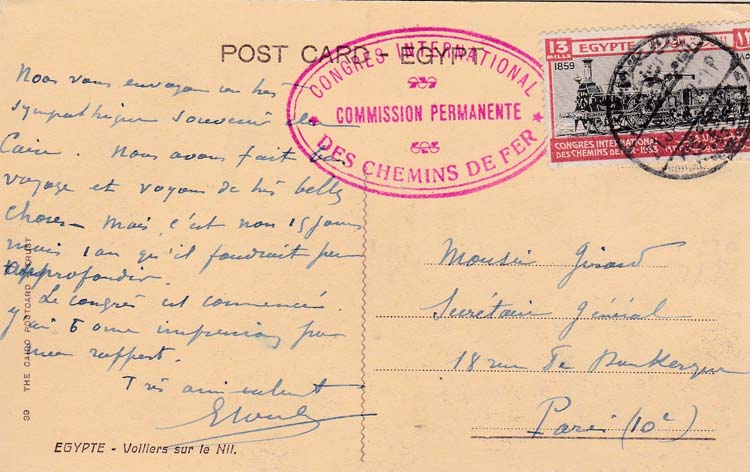 POST CARD - EGYPT
CONGRES INTERNATIONAL
COMMISSION PERMANENTE
DES CHEMINS DE FER
13
MILLS
EGYPTE
1859
CONGRES INTERNATIONAL
DES CHEMINS DE FER-1933
Nous vous envoyons un très
sympathique souvenir du
Caire. Nous avons fait bon
voyage et voyons de très belles
choses - mais, c'est non 15 jours
mais 1 an qu'il faudrait pour
approfondir.
Le congrès est commencé.
mon rapport.
Très amicalement
Monsieur Girard
Secrétaire Général
18 rue de Dunkerque
Paris (10e)
39 THE CAIRO POSTCARD TRUST
EGYPTE - Voiliers sur le Nil.